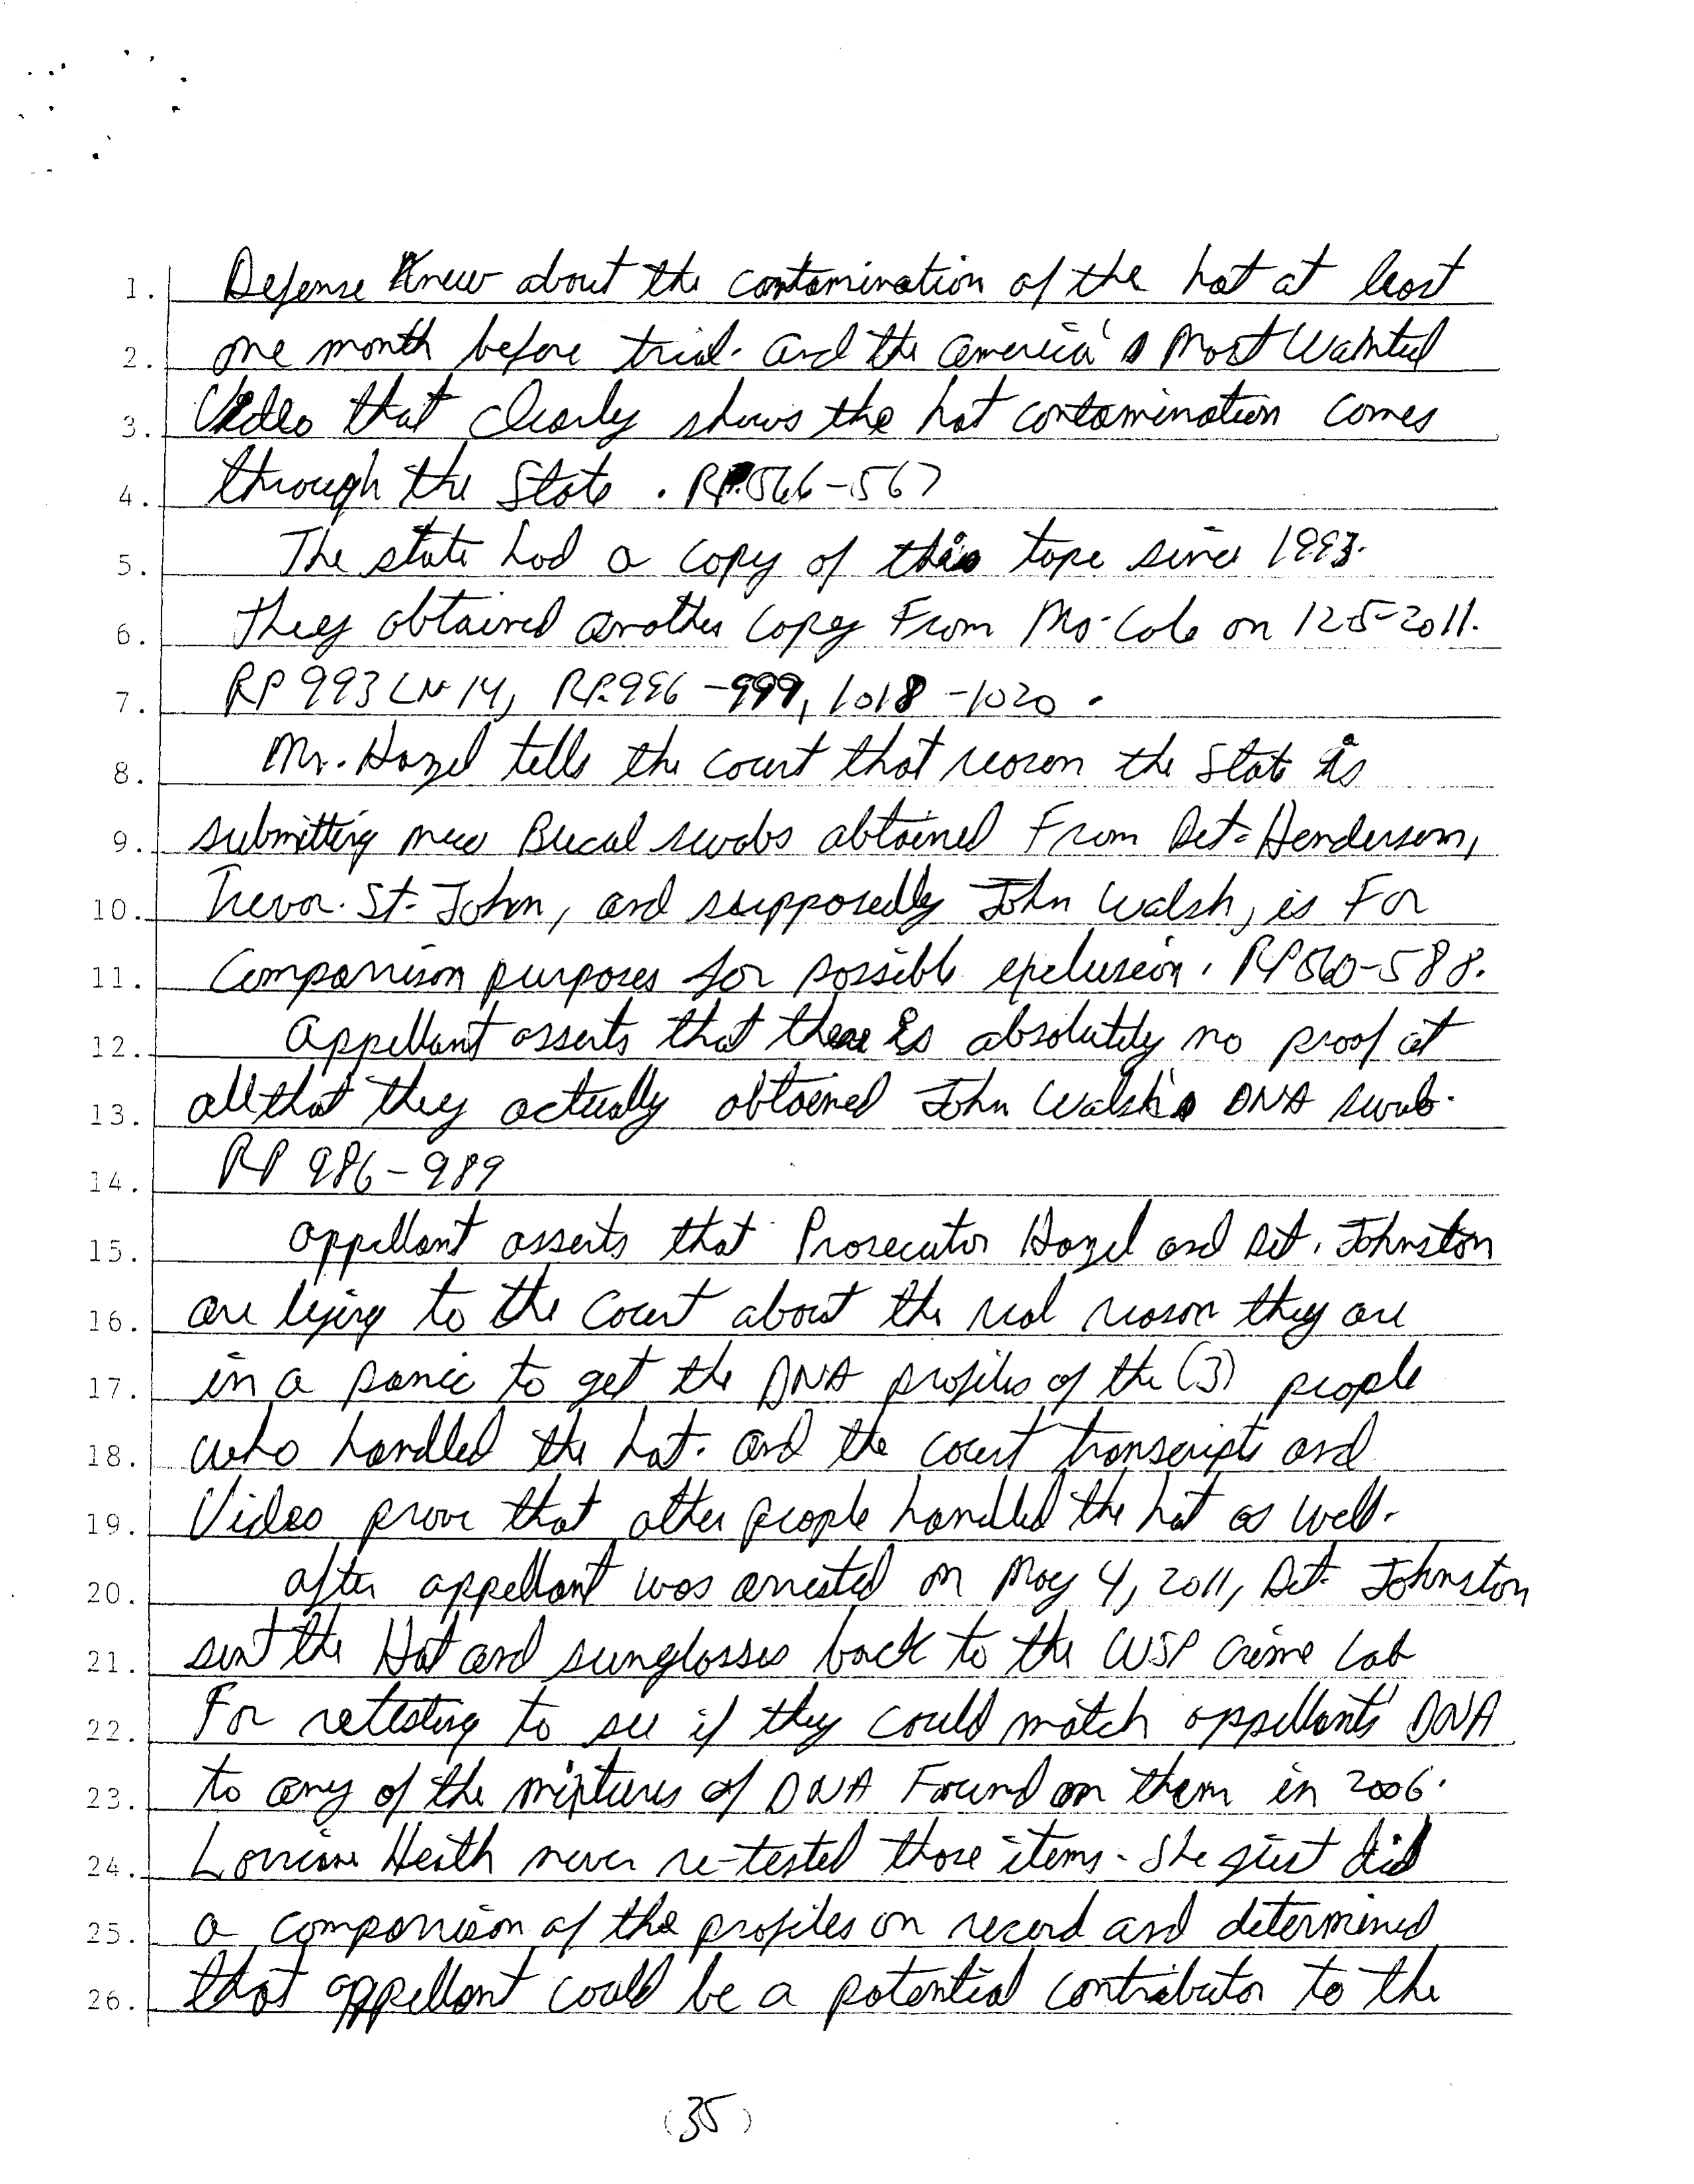 1. Defense Knew about the contamination of the hat at least
2. one month before trial. and the america's Most Wanted
3. Video that clearly shows the hat contamination comes
4. through the State. RP.566-567
5. The state had a copy of this tape since 1993.
6. They obtained another copy From Ms. Cole on 12-5-2011.
7. RP 993 LN 14, RP.996-999, 1018-1020.
8. Mr. Hazel tells the court that reason the State is
9. submitting new Bucal swabs obtained From Det. Henderson,
10. Trevor St. John, and supposedly John Walsh, is For
11. Comparrison purposes for possible exclusion. RP 560-588.
12. Appellant asserts that there is absolutely no proof at
13. all that they actually obtained John Walsh's DNA swab.
14. RP 986-989
15. Appellant asserts that Prosecutor Hazel and Det. Johnston
16. are lying to the Court about the real reason they are
17. in a panic to get the DNA profiles of the (3) people
18. who handled the hat. and the court transcripts and
19. Video prove that other people handled the hat as well.
20. after appellant was arrested on May 4, 2011, Det. Johnston
21. sent the Hat and sunglasses back to the WSP Crime Lab
22. For retesting to see if they could match appellants' DNA
23. to any of the mixtures of DNA Found on them in 2006.
24. Heath never re-tested those items. She just did
25. a comparrison of the profiles on record and determined
26. that appellant could be a potential contributor to the
(35)